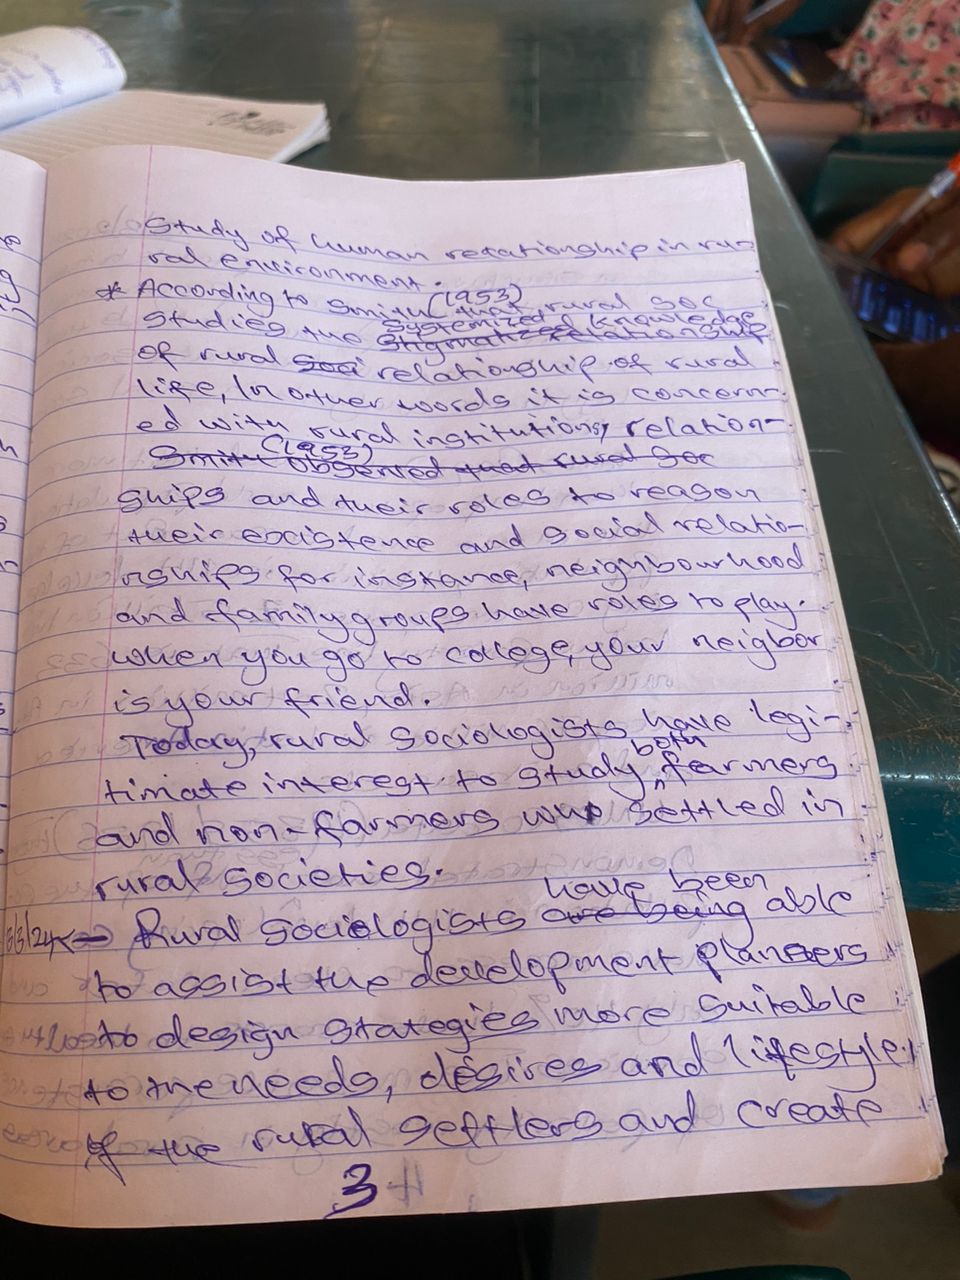 Study of human relationship in ru-
ral environment.
* According to Smith (1953) that rural soc
studies the systemized knowledge
of rural relationship of rural
life, In other words it is concern-
ed with rural institutions, relation-
Smith (1953) observed that rural soc
ships and their roles to reason
their existence and social relatio-
nships for instance, neighbourhood
and family groups have roles to play.
when you go to college, your neigbor
is your friend.
Today, rural sociologists have legi-
timate interest to study both farmers
and non-farmers who settled in
rural societies.
Rural sociologists have been able
to assist the development planners
to design stategies more suitable
to the needs, desires and lifestyle
of the rural settlers and create
3